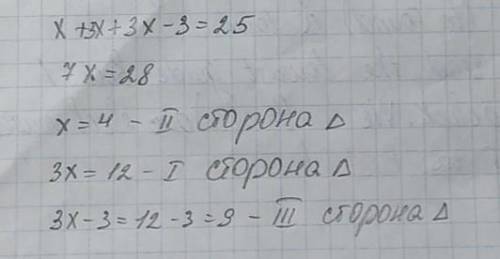 x+3x+3x-3=25
7x=28
x=4 - II сторона △
3x=12 - I сторона △
3x-3=12-3=9 - III сторона △